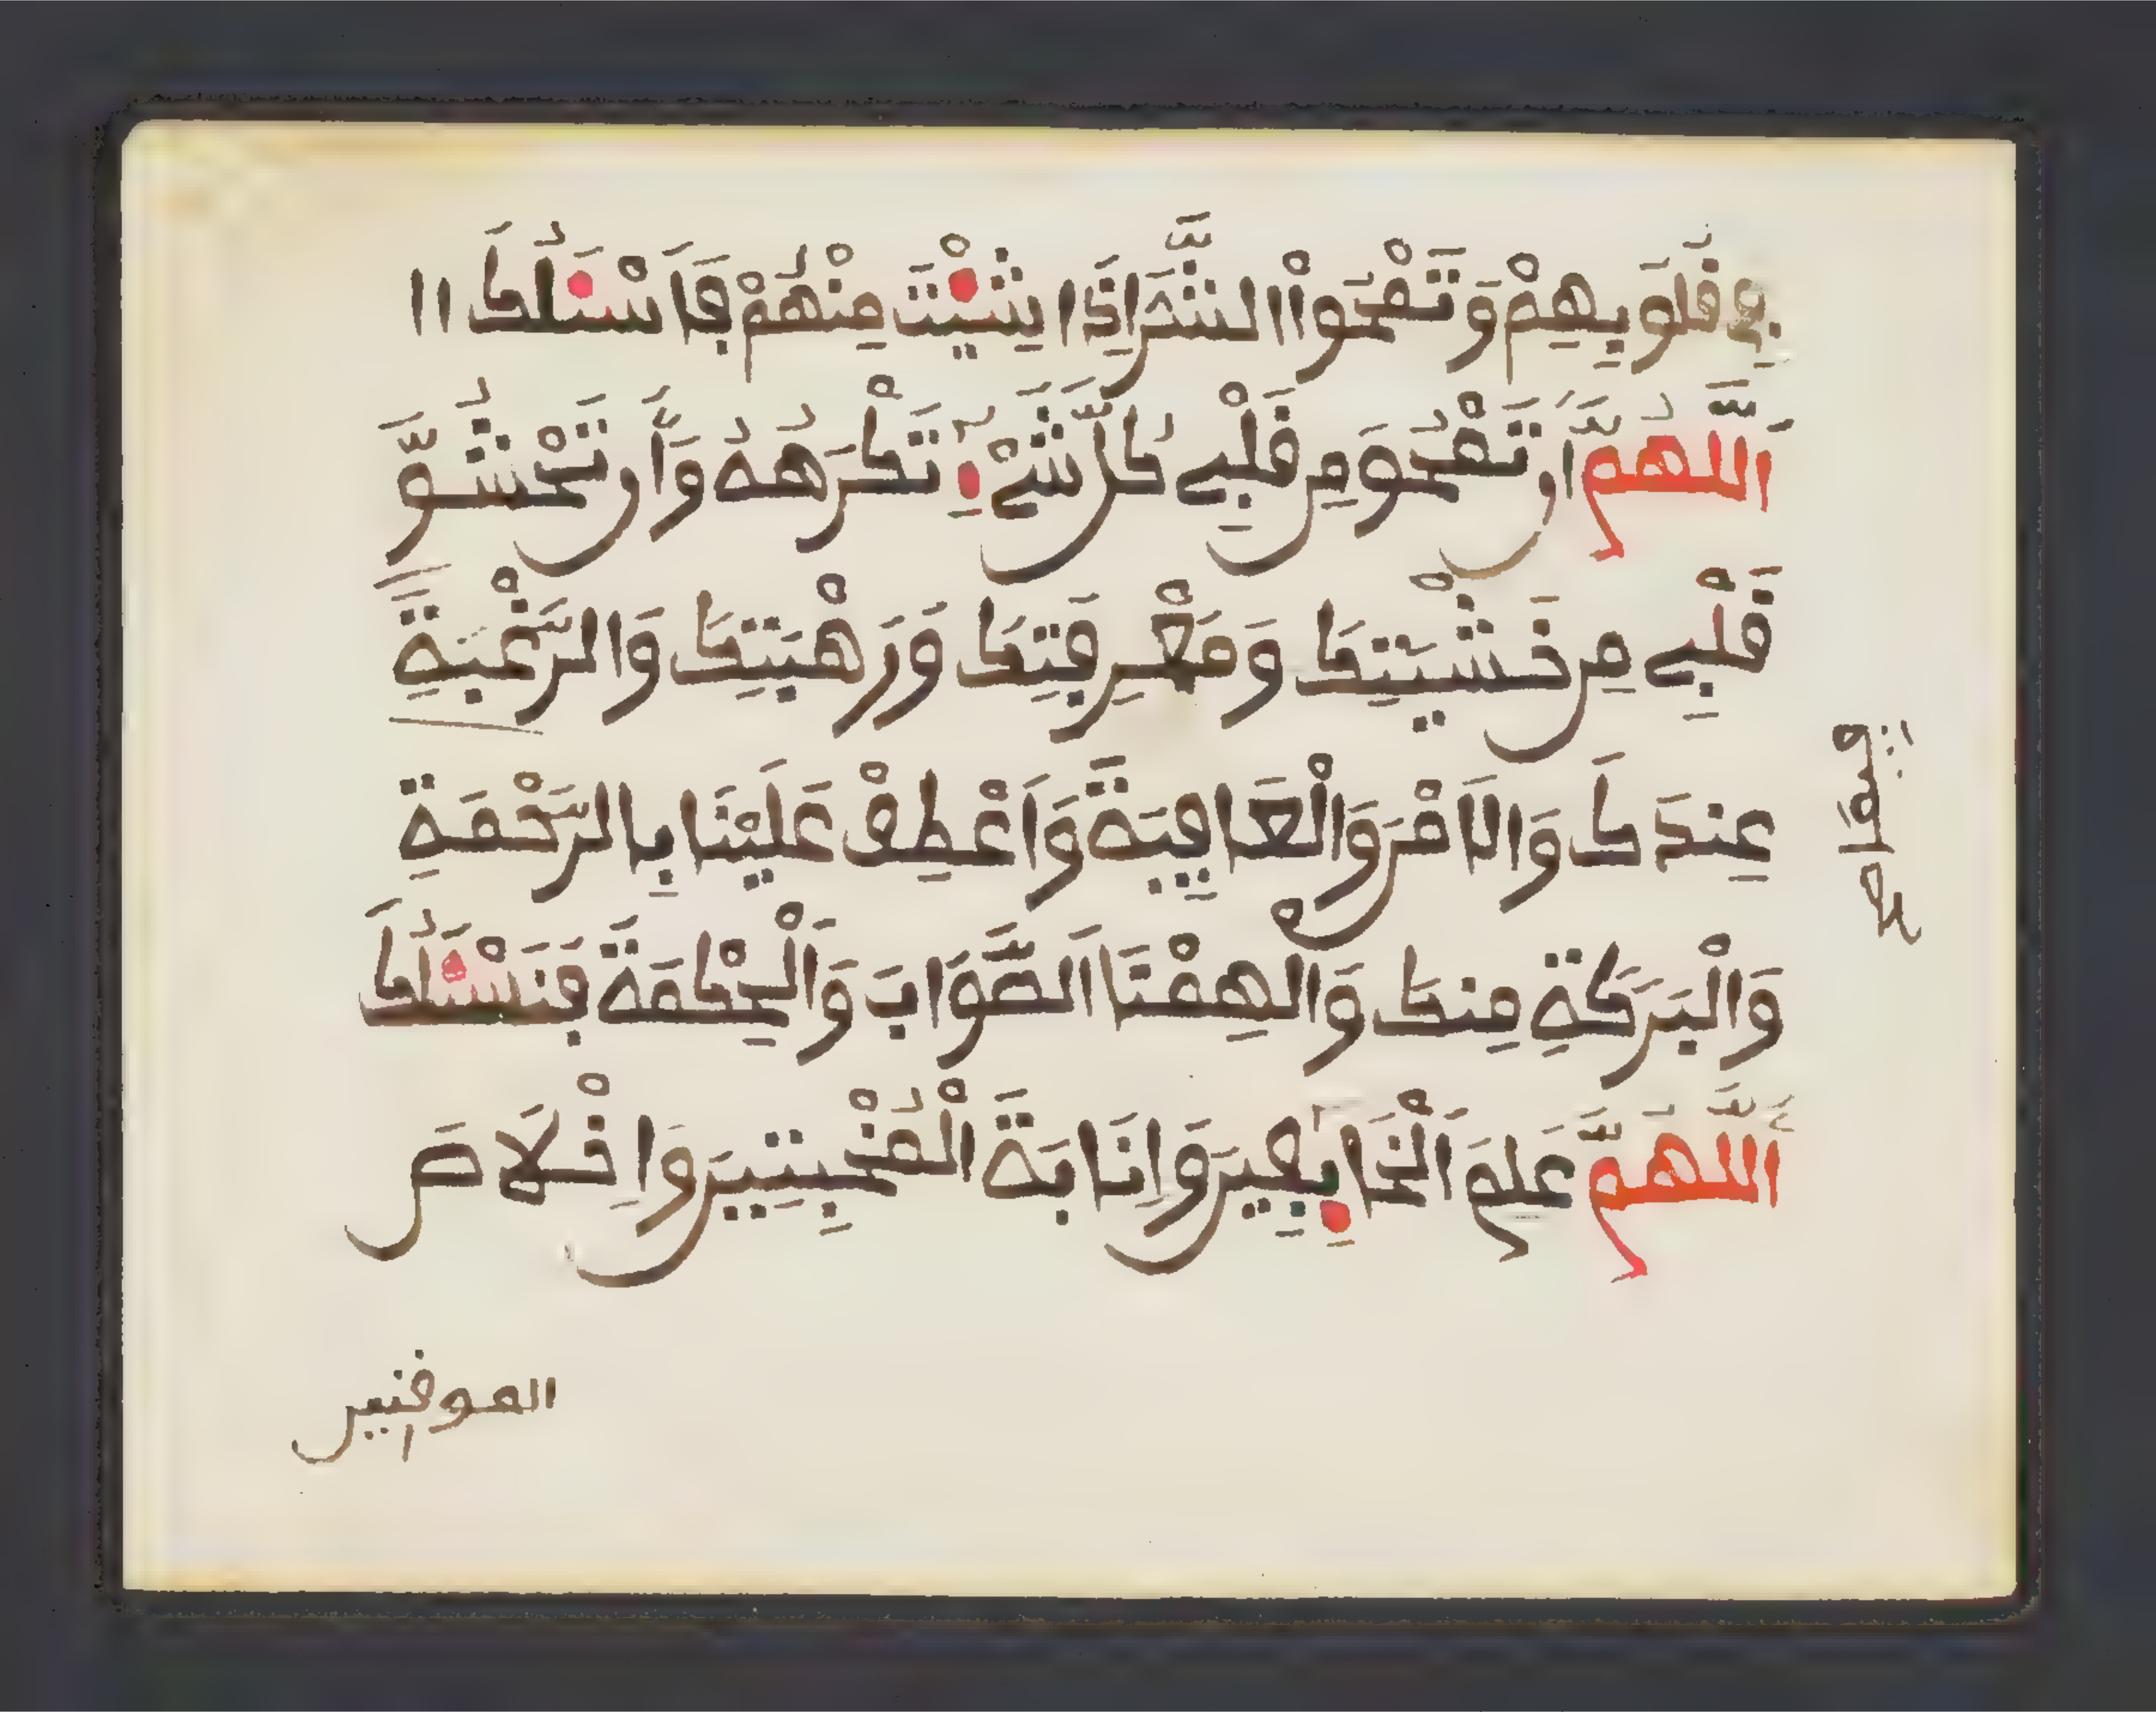 فِي قُلُوبِهِمْ وَتَمْحُواْ الشَّرَّ إِذَا شِئْتَ مِنْهُمْ فَأَسْئَلُكَ
اَللَّهُمَّ أَن تَمْحُوَ مِن قَلْبِي كُلَّ شَيْءٍ تَكْرَهُهُ وَأَن تَحْشُوَّ
قَلْبِي مِن خَشْيَتِكَ وَمَعْرِفَتِكَ وَرَهْبَتِكَ وَالرَّغْبَةِ
عِندَكَ وَالَامْنَ وَالْعَافِيَةَ وَاَعْطِفْ عَلَيْنَا بِالرَّحْمَةِ
وَالْبَرَكَةِ مِنكَ وَالْهِمْنَا اَلصَّوَابَ وَالْحِكْمَةَ فَنَسْئَلُكَ
اَللَّهُمَّ عِلْمَ اَلْخَائِفِينَ وَإِنَابَةَ الْمُخْبِتِينَ وَإِخْلَاصَ
الموقنين